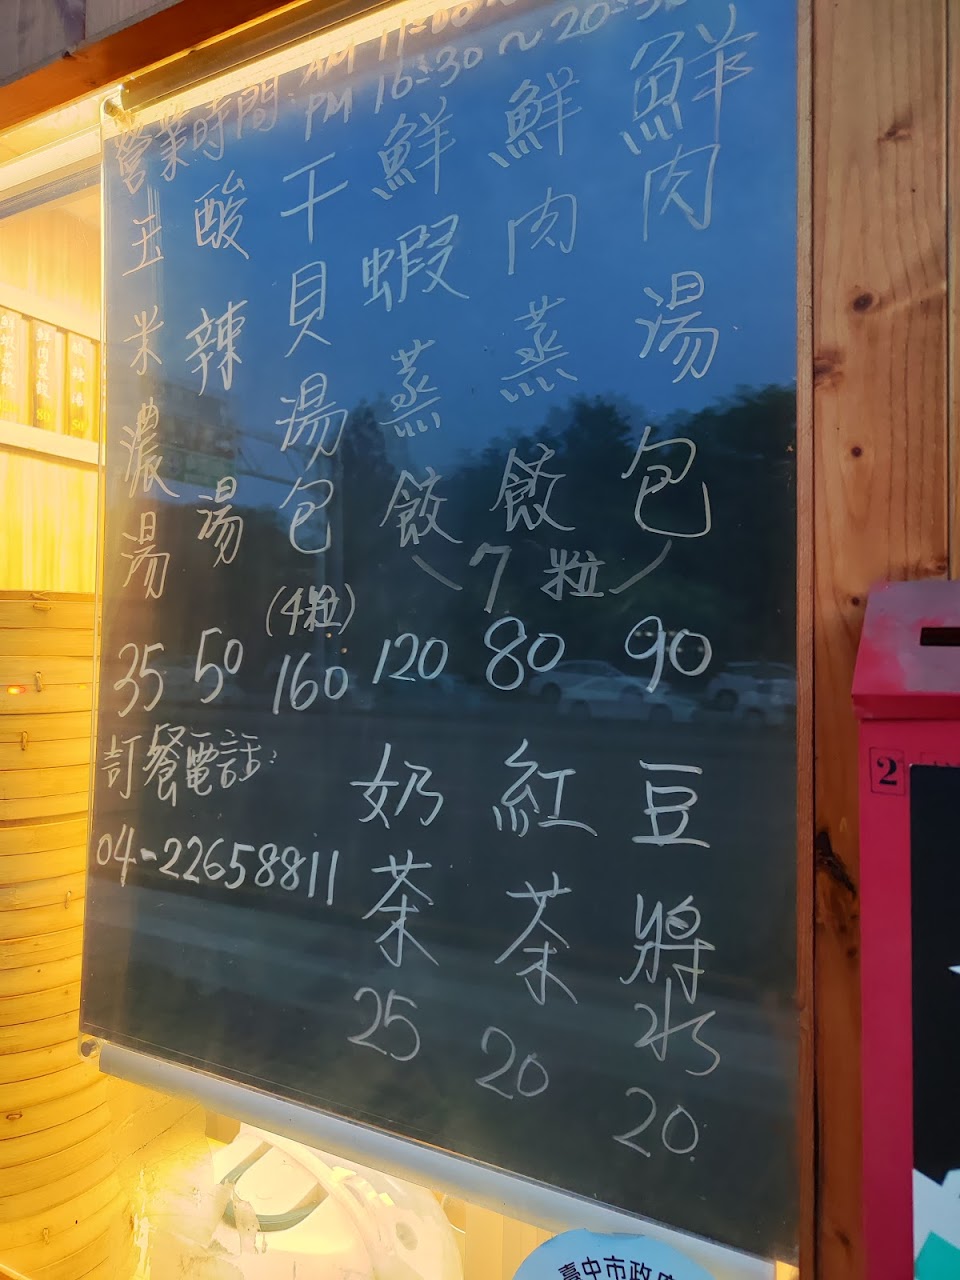 鮮肉湯包 90
鮮肉蒸餃 80
鮮蝦蒸餃 120
(7粒)
干貝湯包 (4粒) 160
酸辣湯 50
玉米濃湯 35
營業時間: AM 11:00~
PM 16:30~20:30
豆漿 20
紅茶 20
奶茶 25
訂餐電話:
04-22658811
酸辣湯 50
鮮肉蒸餃 80
2
臺中市政府